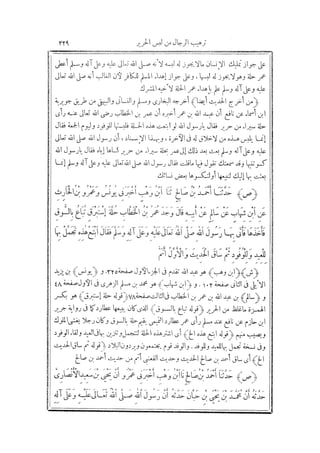 ترهيب الرجال من لبس الحرير ٣٣٩
على جواز تمليك الإنسان مالا يجوز له لبسه لأنه صلى الله تعالى عليه وعلى آله وسلم أعطى
عمر حلة وهو لا يجوز له لبسها . وعلى جواز إهداء المسلم للكافر لأن الغالب أنه صلى الله تعالى
عليه وعلى آله وسلم علم بإهداء عمر الحلة لأخيه المشرك
﴿من أخرج الحديث أيضا﴾ أخرجه البخاري ومسلم والنسائي والبيهقي من طريق جويرية
ابن أسماء عن نافع أن عبد الله بن عمر أخبره أن عمر بن الخطاب رضى الله تعالى عنه رأى
حلة سيراء من حرير فقال يا رسول الله لو ابتعت هذه الحلة فلبستها للوفود وليوم الجمعة فقال
إنما يلبس هذه من لا خلاق له في الآخرة ، وبهذا الإسناد أن رسول الله صلى الله تعالى
عليه وعلى آله وسلم بعث بعد ذلك إلى عمر بحلة سيراء من حرير كساها إياه فقال يا رسول الله
كسوتنيها وقد سمعتك تقول فيها ما قلت فقال رسول الله صلى الله تعالى عليه وعلى آله وسلم إنما
بعثت بها إليك لتبيعها أو لتكسوها بعض نسائك
﴿ص﴾ حَدَّثَنَا أَحْمَدُ بْنُ صَالِحٍ نَا ابْنُ وَهْبٍ أَخْبَرَنِي يُونُسُ وَعَمْرُو بْنُ الْحَارِثِ
عَنِ ابْنِ شِهَابٍ عَنْ سَالِمٍ عَنْ أَبِيهِ قَالَ وَجَدَ عُمَرُ بْنُ الْخَطَّابِ حُلَّةَ إِسْتَبْرَقٍ تُبَاعُ بِالسُّوقِ
فَأَخَذَهَا فَأَتَى بِهَا رَسُولَ اللهِ صَلَّى اللهُ تَعَالَى عَلَيْهِ وَعَلَى آلِهِ وَسَلَّمَ فَقَالَ ابْتَعْ هَذِهِ تَجَمَّلْ بِهَا
لِلْعِيدِ وَلِلْوُفُودِ ثُمَّ سَاقَ الْحَدِيثَ وَالْأَوَّلُ أَتَمُّ
﴿ش﴾ ﴿ابن وهب﴾ هو عبد الله تقدم في الجزء الأول صفحة ٣٢٥ و ﴿يونس﴾ بن يزيد
الأيلي في الثاني صفحة ١٠٢ . و ﴿ابن شهاب﴾ هو محمد بن مسلم الزهرى في الأول صفحة ٤٨
و ﴿سالم﴾ بن عبد الله بن عمر بن الخطاب في الثالث صفحة ﴿قوله حلة إستبرق﴾ هو بكسر
الهمزة ما غلظ من الحرير ﴿قوله تباع بالسوق﴾ الذى كان يبيعها عطارد كما في رواية جرير
ابن حازم عن نافع عند مسلم رأى عمر عطاردا التميمى يقيم حلة بالسوق وكان رجلا يغشى الملوك
ويصيب منهم ﴿قوله ابتع هذه الخ﴾ أى اشتر هذه الحلة لتتجمل وتتزين بها في العيد ولقاء الوفود
وفى نسخة تجمل بها للعيد وللوفد . والوفد قوم يجتمعون ويردون البلاد ﴿قوله ثم ساق الحديث
الخ﴾ أى ساق أحمد بن صالح الحديث وحديث القعنبى أتم من حديث أحمد بن صالح
﴿ص﴾ حَدَّثَنَا أَحْمَدُ بْنُ صَالِحٍ نَا ابْنُ وَهْبٍ أَخْبَرَنِي عَمْرٌو أَنَّ يَحْيَى بْنَ سَعِيدٍ الْأَنْصَارِيَّ
حَدَّثَهُ أَنَّ مُحَمَّدَ بْنَ يَحْيَى بْنِ حَبَّانَ حَدَّثَهُ أَنَّ رَسُولَ اللهِ صَلَّى اللهُ تَعَالَى عَلَيْهِ وَعَلَى آلِهِ